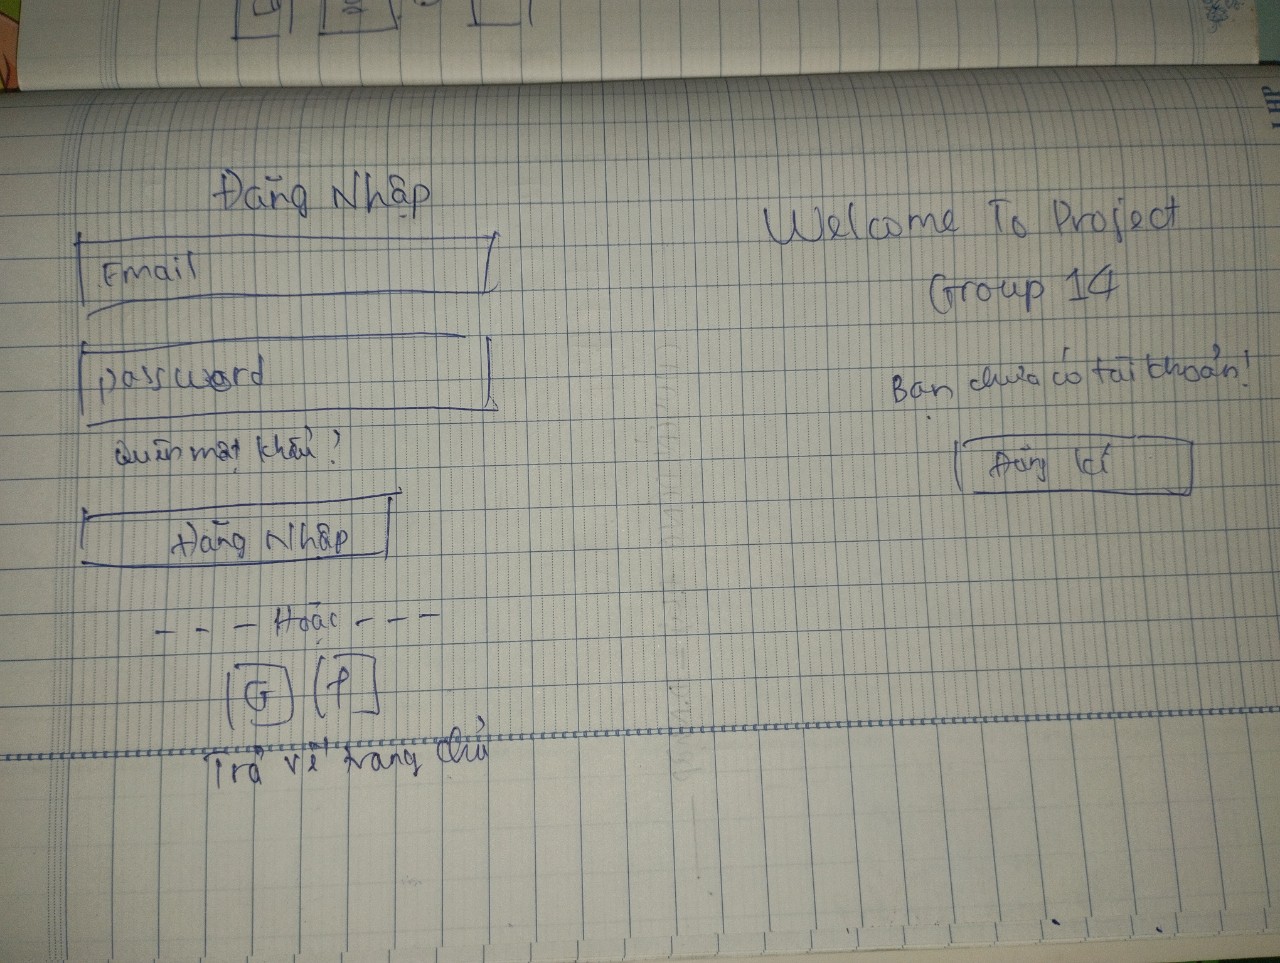 Đăng Nhập
Email
password
Quên mật khẩu?
Đăng Nhập
- - - Hoặc - - -
G f
Trở về trang chủ
Welcome To Project
Group 14
Bạn chưa có tài khoản!
Đăng kí
LHP